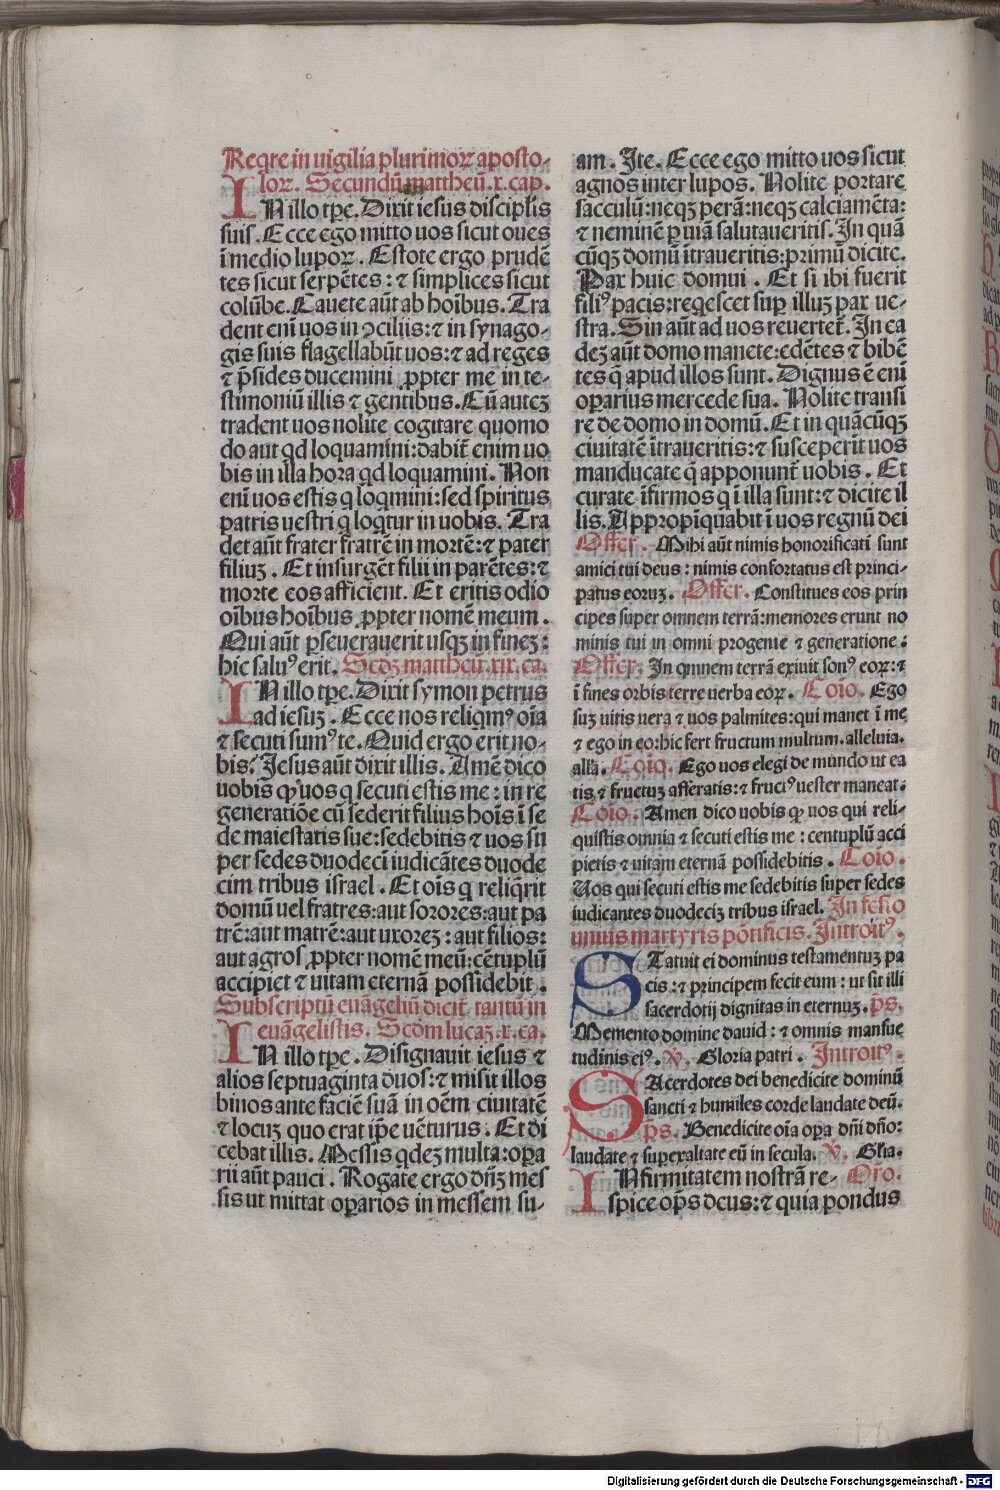 Reqre in uigilia plurimoꝝ aposto-
loꝝ. Secundū mattheū.x.cap.
IN illo tꝑe. Dixit iesus discipłis
suis. Ecce ego mitto uos sicut oues
ī medio lupoꝝ. Estote ergo prudē
tes sicut serpētes: ⁊ simplices sicut
colūbe. Cauete aūt ab hoībus. Tra
dent enī uos in ꝯciliis: ⁊ in synago-
gis suis flagellabūt uos: ⁊ ad reges
⁊ p̄sides ducemini ꝓpter me in te-
stimoniū illis ⁊ gentibus. Cū autez
tradent uos nolite cogitare quomo
do aut qd loquamini: dabit̄ enim uo
bis in illa hora qd loquamini. Non
enī uos estis q̄ loqmini: sed spiritus
patris uestri q̄ loqtur in uobis. Tra
det aūt frater fratrē in mortē: ⁊ pater
filiuz. Et insurgēt filii in parētes: ⁊
morte eos afficient. Et eritis odio
oībus hoībus ꝓpter nomē meum.
Qui aūt ꝑseuerauerit usqꝫ in finez:
hic saluꝰ erit. Scd̄z mattheū.xix.ca.
IN illo tꝑe. Dixit symon petrus
ad iesuz. Ecce nos reliqmꝰ oīa
⁊ secuti sumꝰ te. Quid ergo erit no-
bis? Jesus aūt dixit illis. Amē dico
uobis ꝙ uos q̄ secuti estis me: in re
generatiōe cū sederit filius hoīs ī se
de maiestatis sue: sedebitis ⁊ uos su
per sedes duodecī iudicātes duode
cim tribus israel. Et oīs q̄ reliq̄rit
domū uel fratres: aut sorores: aut pa
trē: aut matrē: aut uxorez: aut filios:
aut agros ꝓpter nomē meū: cētuplū
accipiet ⁊ uitam eternā possidebit.
Subscriptū euāgeliū dicit̄ tantū in
euāgelistis. Scdm lucaz.x.ca.
IN illo tꝑe. Disignauit iesus ⁊
alios septuaginta duos: ⁊ misit illos
binos ante faciē suā in oēm ciuitatē
⁊ locuz quo erat ip̄e uēturus. Et di
cebat illis. Messis qdez multa: oꝑa
rii aūt pauci. Rogate ergo dn̄z mes
sis ut mittat oꝑarios in messem su-
am. Ite. Ecce ego mitto uos sicut
agnos inter lupos. Nolite portare
sacculū: neqꝫ perā: neqꝫ calciamēta:
⁊ neminē ꝑ uiā salutaueritis. In quā
cūqꝫ domū ītraueritis: primū dicite.
Pax huic domui. Et si ibi fuerit
filiꝰ pacis: reqescet suꝑ illuz pax ue-
stra. Sin aūt ad uos reuertet̄. In ea
dez aūt domo manete: edētes ⁊ bibē
tes q̄ apud illos sunt. Dignus ē enī
oꝑarius mercede sua. Nolite transi
re de domo in domū. Et in quācūqꝫ
ciuitatē ītraueritis: ⁊ susceperit uos
manducate q̄ apponunt̄ uobis. Et
curate īfirmos q̄ ī illa sunt: ⁊ dicite il
lis. Appropīquabit ī uos regnū dei
Offer. Mihi aūt nimis honorificati sunt
amici tui deus: nimis confortatus est princi-
patus eoruz. Offer. Constitues eos prin
cipes super omnem terrā: memores erunt no
minis tui in omni progenie ⁊ generatione:
Offer. In omnem terrā exiuit sonꝰ eoꝝ: ⁊
ī fines orbis terre uerba eoꝝ. Coīo. Ego
suz uitis uera ⁊ uos palmites: qui manet ī me
⁊ ego in eo: hic fert fructum multum. alleluia.
alła. Coīo. Ego uos elegi de mundo ut ea
tis ⁊ fructuz afferatis: ⁊ fructꝰ uester maneat.
Coīo. Amen dico uobis ꝙ uos qui reli-
quistis omnia ⁊ secuti estis me: centuplū acci
pietis ⁊ uitam eternā possidebitis. Coīo.
Uos qui secuti estis me sedebitis super sedes
iudicantes duodeciz tribus israel. In festo
unius martyris pōtificis. Introitꝰ.
STatuit ei dominus testamentuz pa
cis: ⁊ principem fecit eum: ut sit illi
sacerdotij dignitas in eternuz. p̄s.
Memento domine dauid: ⁊ omnis mansue
tudinis eiꝰ. ℣. Gloria patri. Introitꝰ.
SAcerdotes dei benedicite dominū
sancti ⁊ humiles corde laudate deū.
p̄s. Benedicite oīa oꝑa dn̄i dn̄o:
laudate ⁊ suꝑexaltate eū in secula. ℣. Gl̄ia.
INfirmitatem nostrā re- Or̄o.
spice op̄s deus: ⁊ quia pondus
Digitalisierung gefördert durch die Deutsche Forschungsgemeinschaft - DFG